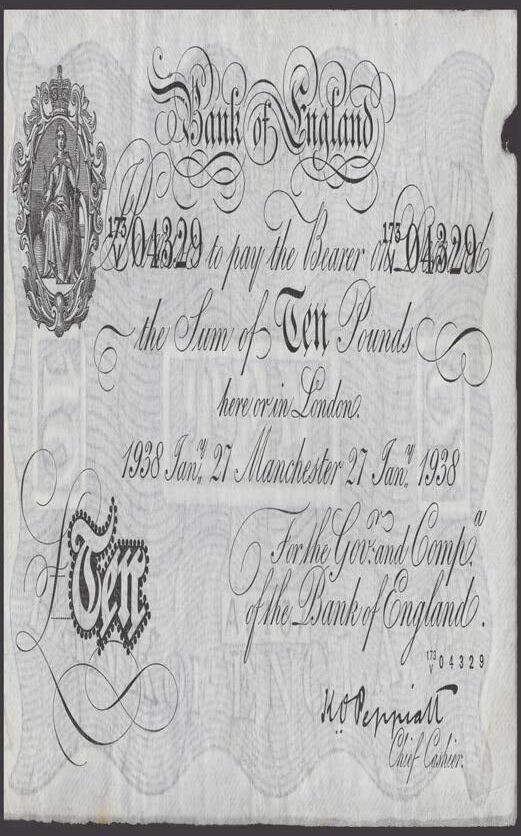 Bank of England
173 V 04329 to pay the Bearer on 173 V 04329
the Sum of Ten Pounds
here or in London.
1938 Jan.y 27 Manchester 27 Jan.y 1938
For the Gov.r and Comp.a
of the Bank of England.
£Ten
173 V 04329
K.O. Peppiatt
Chief Cashier.